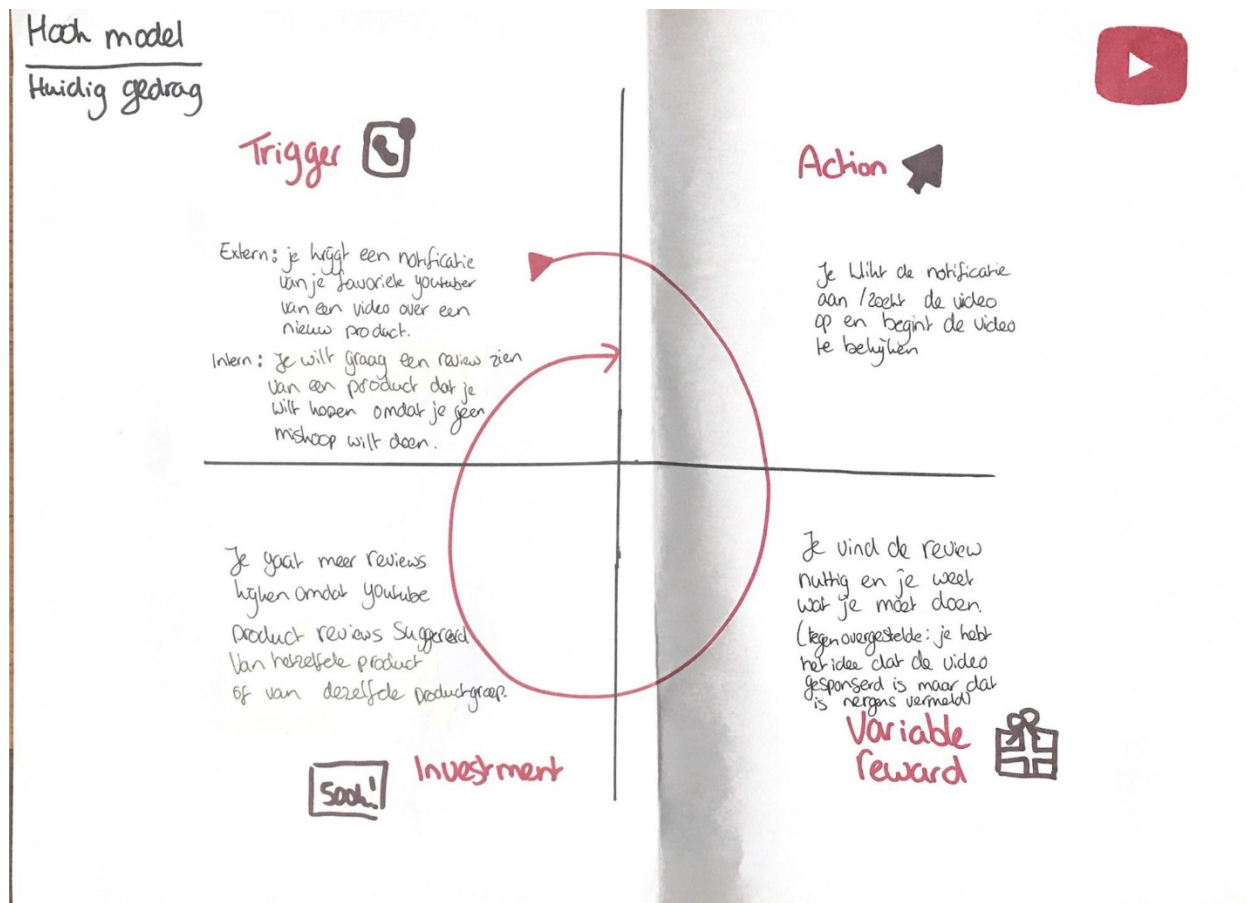 Hook model
Huidig gedrag
Trigger
Extern: je krijgt een notificatie
van je favoriete youtuber
van een video over een
nieuw product.
Intern: Je wilt graag een review zien
van een product dat je
wilt kopen omdat je geen
miskoop wilt doen.
Action
Je klikt de notificatie
aan / zoekt de video
op en begint de video
te bekijken
Je gaat meer reviews
kijken omdat youtube
product reviews suggereerd
van hetzelfde product
of van dezelfde productgroep.
Investment
Je vind de review
nuttig en je weet
wat je moet doen.
(tegenovergestelde: je hebt
het idee dat de video
gesponserd is maar dat
is nergens vermeld)
Variable
reward